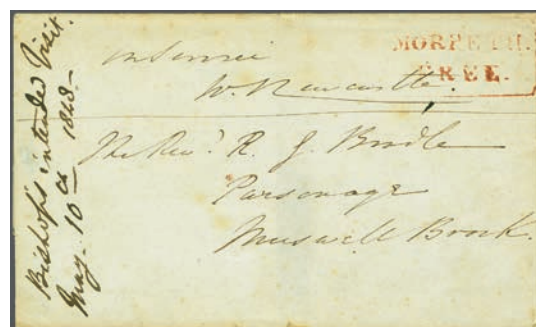 Bishop's intended Visit.
May. 10th 1848.
MORPETH.
FREE.
W. Newcastle.
The Revd. R. J. Boodle
Parsonage
Muswell Brook.